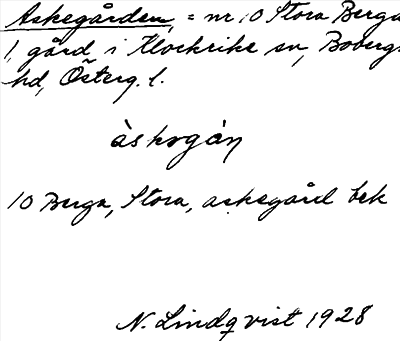 Askegården, = nr 10 Stora Berga
1, gård i Klockrike sn, Bobergs
hd, Österg. l.
àskogáṇ
10 Berga, Stora, askegård bek
N. Lindqvist 1928